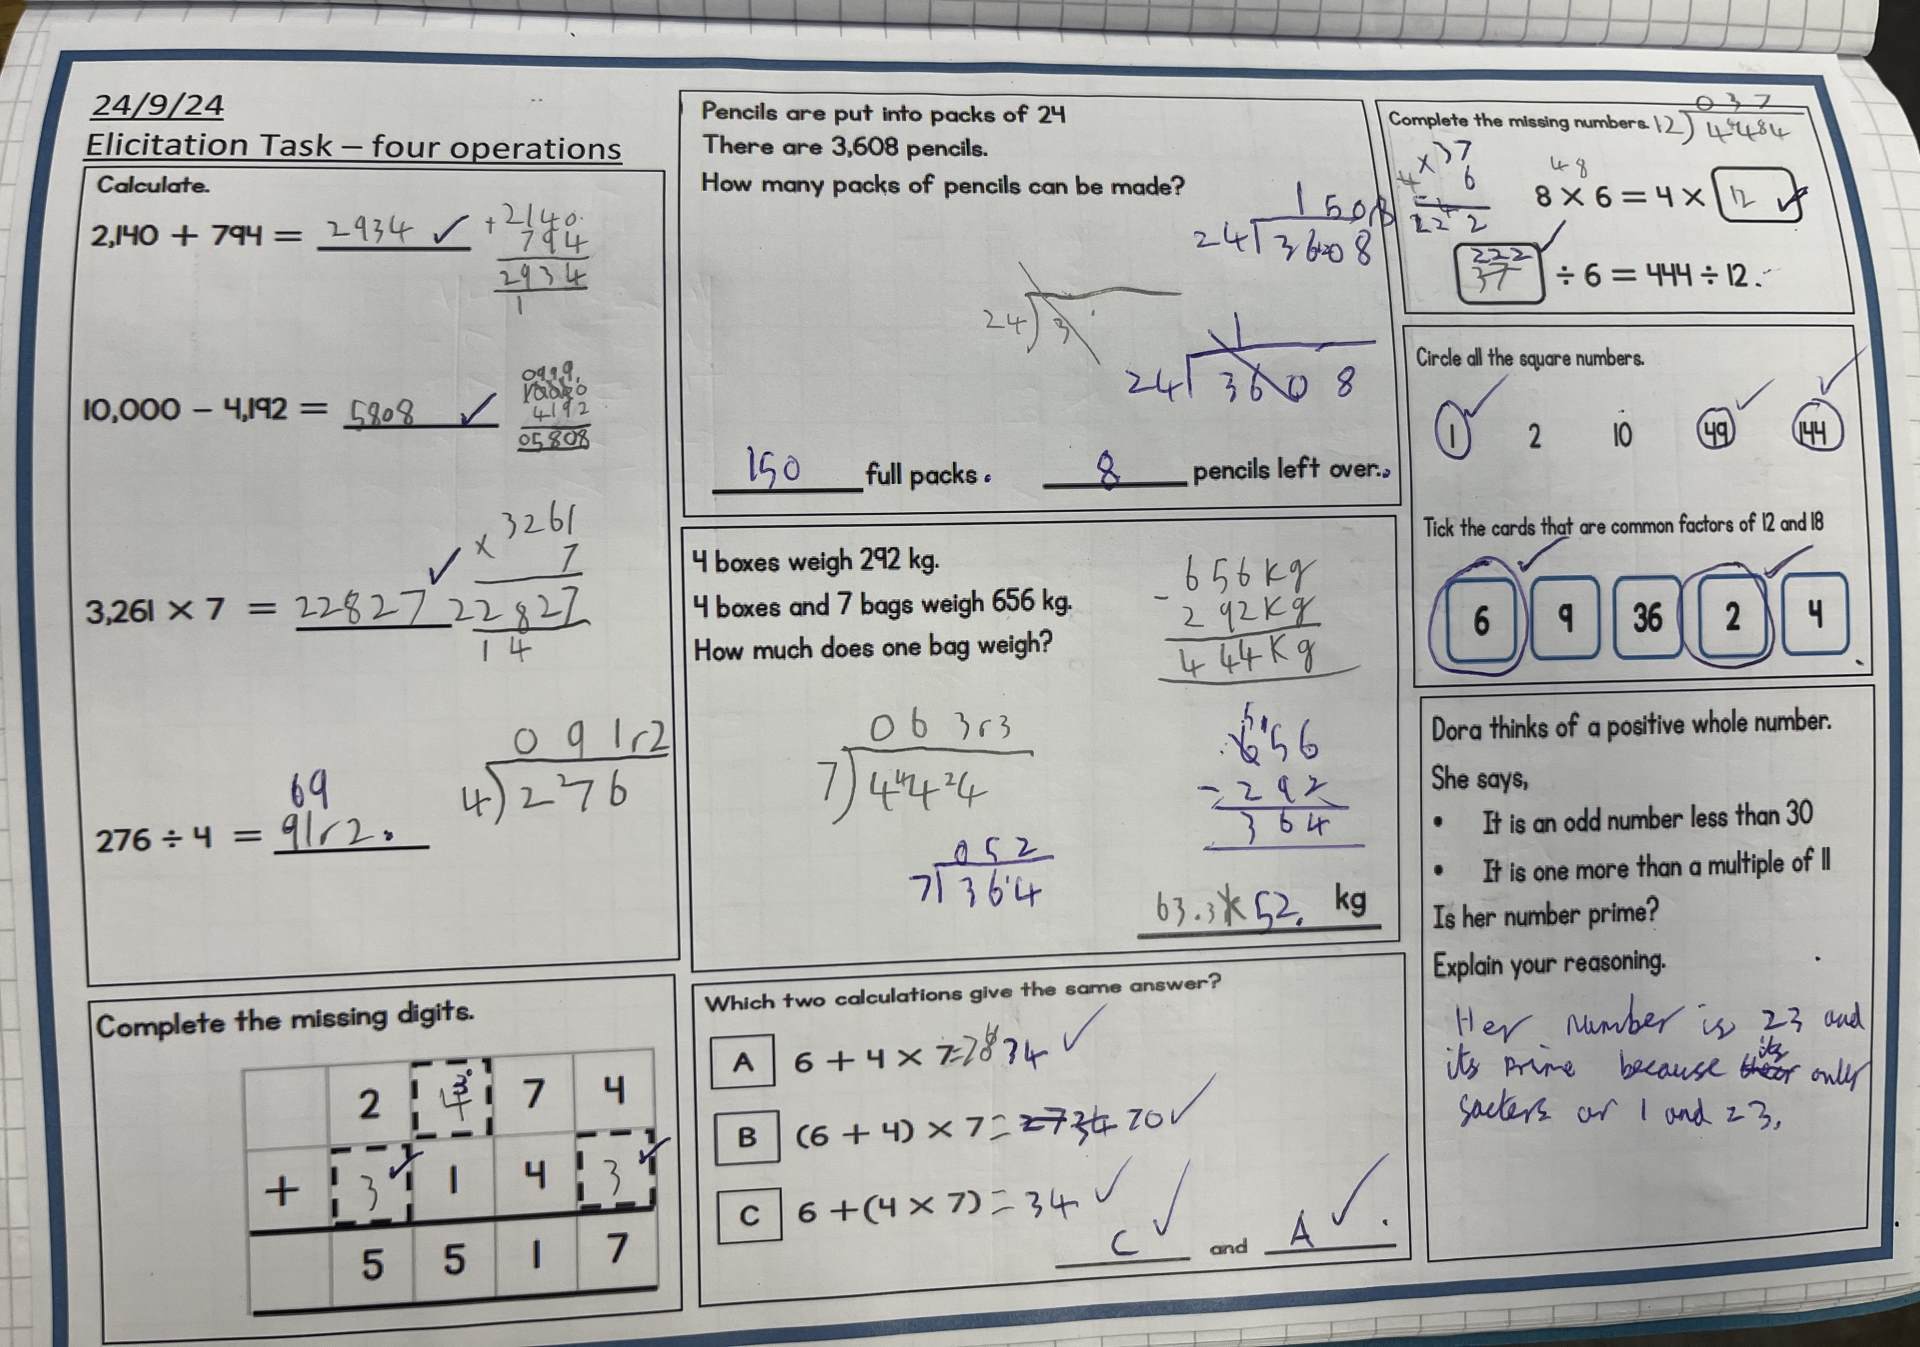 24/9/24
Elicitation Task – four operations
Calculate.
2,140 + 794 = 2934 ✓
+2140
794
2934
1
10,000 − 4,192 = 5808 ✓
4192
05808
3,261 × 7 = 22827 ✓
× 3261
7
22827
14
276 ÷ 4 = 91r2.
69
091r2
4)276
Complete the missing digits.
2 3 7 4
+ 3 1 4 3
5 5 1 7
Pencils are put into packs of 24
There are 3,608 pencils.
How many packs of pencils can be made?
24 3608
24)3
1
24 3608
150 full packs. 8 pencils left over.
4 boxes weigh 292 kg.
4 boxes and 7 bags weigh 656 kg.
How much does one bag weigh?
656kg
− 292kg
444kg
063r3
7)444
656
− 292
364
052
7 364
63.3 52. kg
Which two calculations give the same answer?
A 6 + 4 × 7 = 34 ✓
B (6 + 4) × 7 = 70 ✓
C 6 + (4 × 7) = 34 ✓
C ✓ and A ✓.
Complete the missing numbers.
037
12)4484
× 37
6
222
48
8 × 6 = 4 × 12 ✓
222
37 ÷ 6 = 444 ÷ 12.
Circle all the square numbers.
1 2 10 49 144
Tick the cards that are common factors of 12 and 18
6 9 36 2 4
Dora thinks of a positive whole number.
She says,
• It is an odd number less than 30
• It is one more than a multiple of 11
Is her number prime?
Explain your reasoning.
Her number is 23 and
its prime because its only
facters ar 1 and 23.